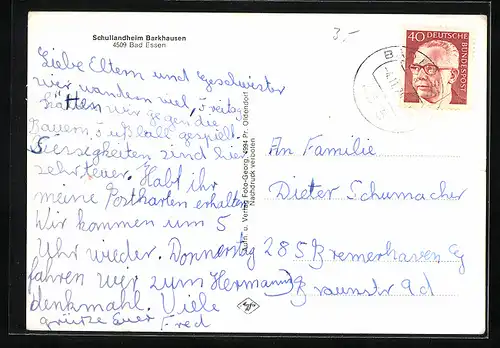 Schullandheim Barkhausen
4509 Bad Essen
3.-
Liebe Eltern und Geschwister
wir wandern viel, Freitag
hatten wir gegen die
Bauern, Fußball gespielt.
Süßigkeiten sind hier
sehr teuer. Habt ihr
meine Postkarten erhalten
Wir kommen um 5
Uhr wieder. Donnerstag
fahren wir zum Hermann
denkmahl. Viele
grüße Euer Fred
Aufn. u. Verlag Foto-Georg, 4994 Pr. Oldendorf
Nachdruck verboten
40 DEUTSCHE BUNDESPOST
An Familie
Dieter Schumacher
285 Bremerhaven
Braunstr 9d